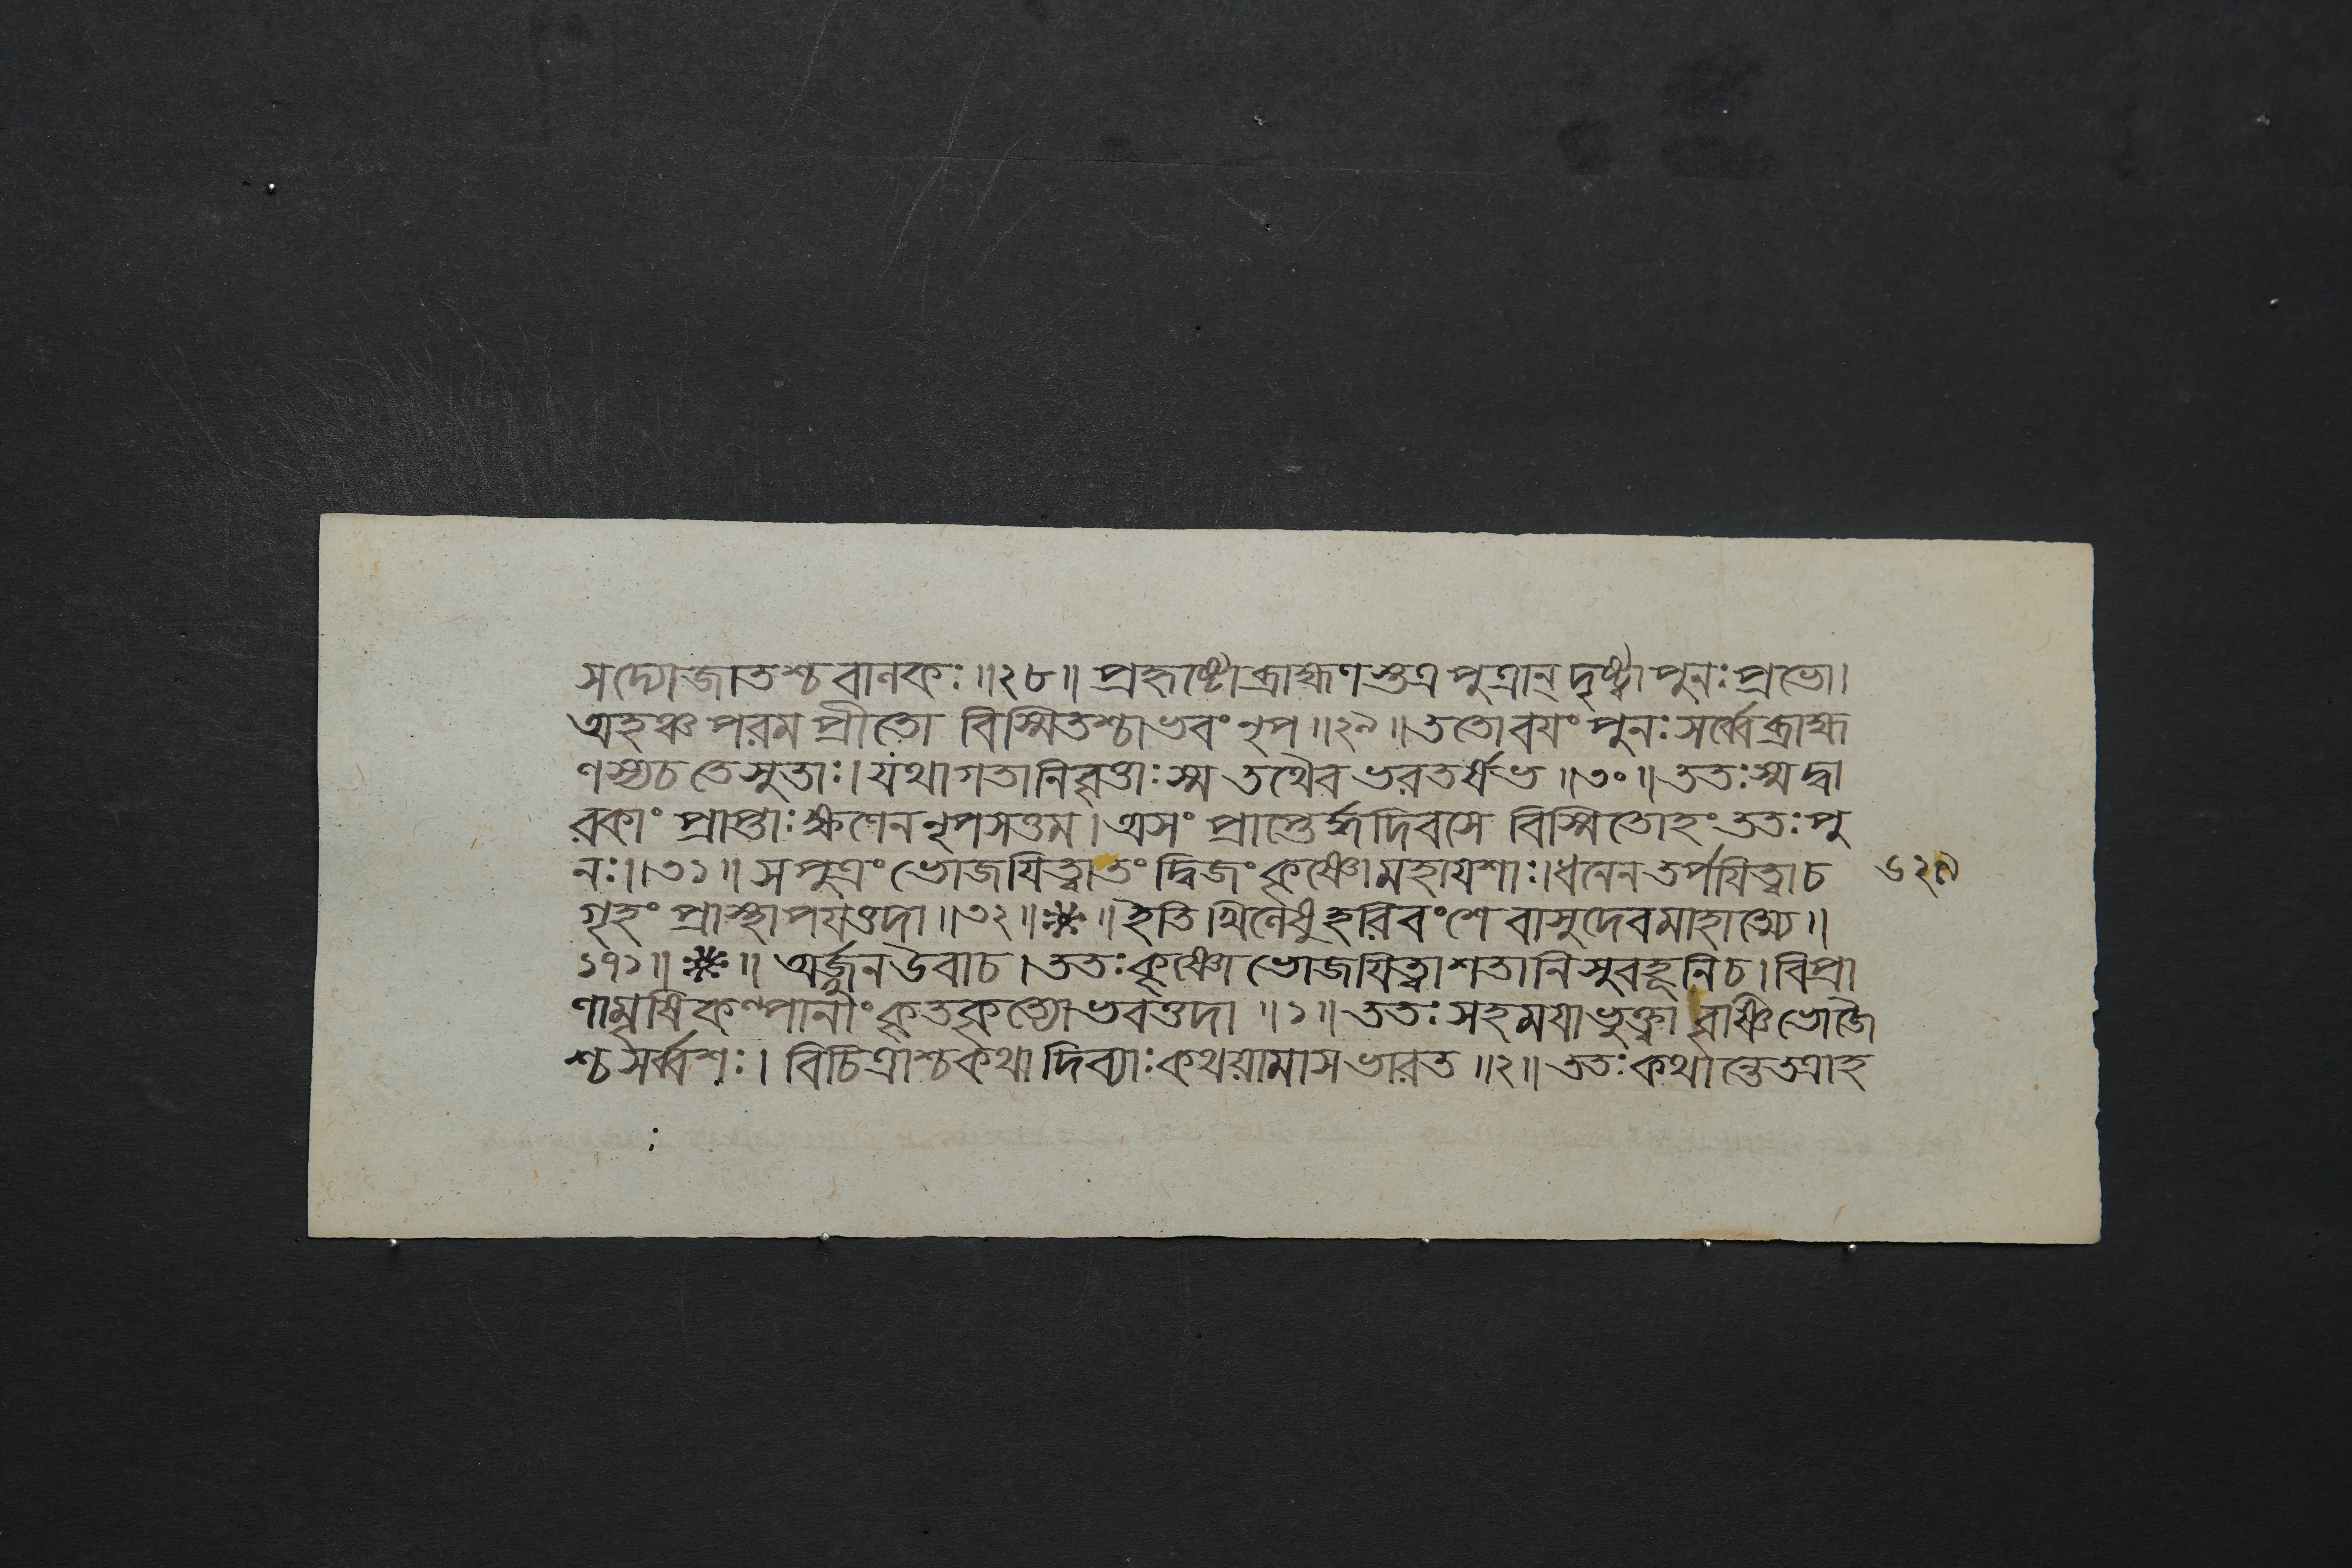 সদ্যোজাতশ্চ বালকঃ॥২৮॥ প্রহৃষ্টোব্রাহ্মণস্তত্র পুত্রান্ দৃষ্ট্বা পুনঃ প্রভো।
অহঞ্চ পরম প্রীতো বিস্মিতশ্চাভবং নৃপ॥২৯॥ ততোবয়ং পুনঃ সর্ব্বে ব্রাহ্ম
ণস্যচতেসুতাঃ। যথাগতানিবৃত্তাঃস্ম তথৈব ভরতর্ষভ॥৩০॥ ততঃস্মদ্বা
রকাং প্রাপ্তাঃ ক্ষণেননৃপসত্তম। অসং প্রাপ্তের্দ্ধদিবসে বিস্মিতোহংততঃ পু
নঃ॥৩১॥ সপুত্রং ভোজয়িত্বাতং দ্বিজং কৃষ্ণোমহাযশাঃ। ধনেনতর্পয়িত্বাচ ৬২৯
গৃহং প্রাস্থাপয়ত্তদা॥৩২॥❋॥ ইতিখিলেষু হরিবংশে বাসুদেবমাহাত্ম্যে॥
১৭১॥❋॥ অর্জ্জুনউবাচ। ততঃকৃষ্ণো ভোজয়িত্বাশতানিসুবহূনিচ। বিপ্রা
ণামৃষিকল্পানাং কৃতকৃত্যোভবত্তদা॥১॥ ততঃ সহময়াভুক্ত্বা বৃষ্ণিভোজৈ
শ্চসর্ব্বশঃ। বিচিত্রাশ্চকথা দিব্যাঃকথয়ামাসভারত॥২॥ ততঃকথান্তেতত্রাহ